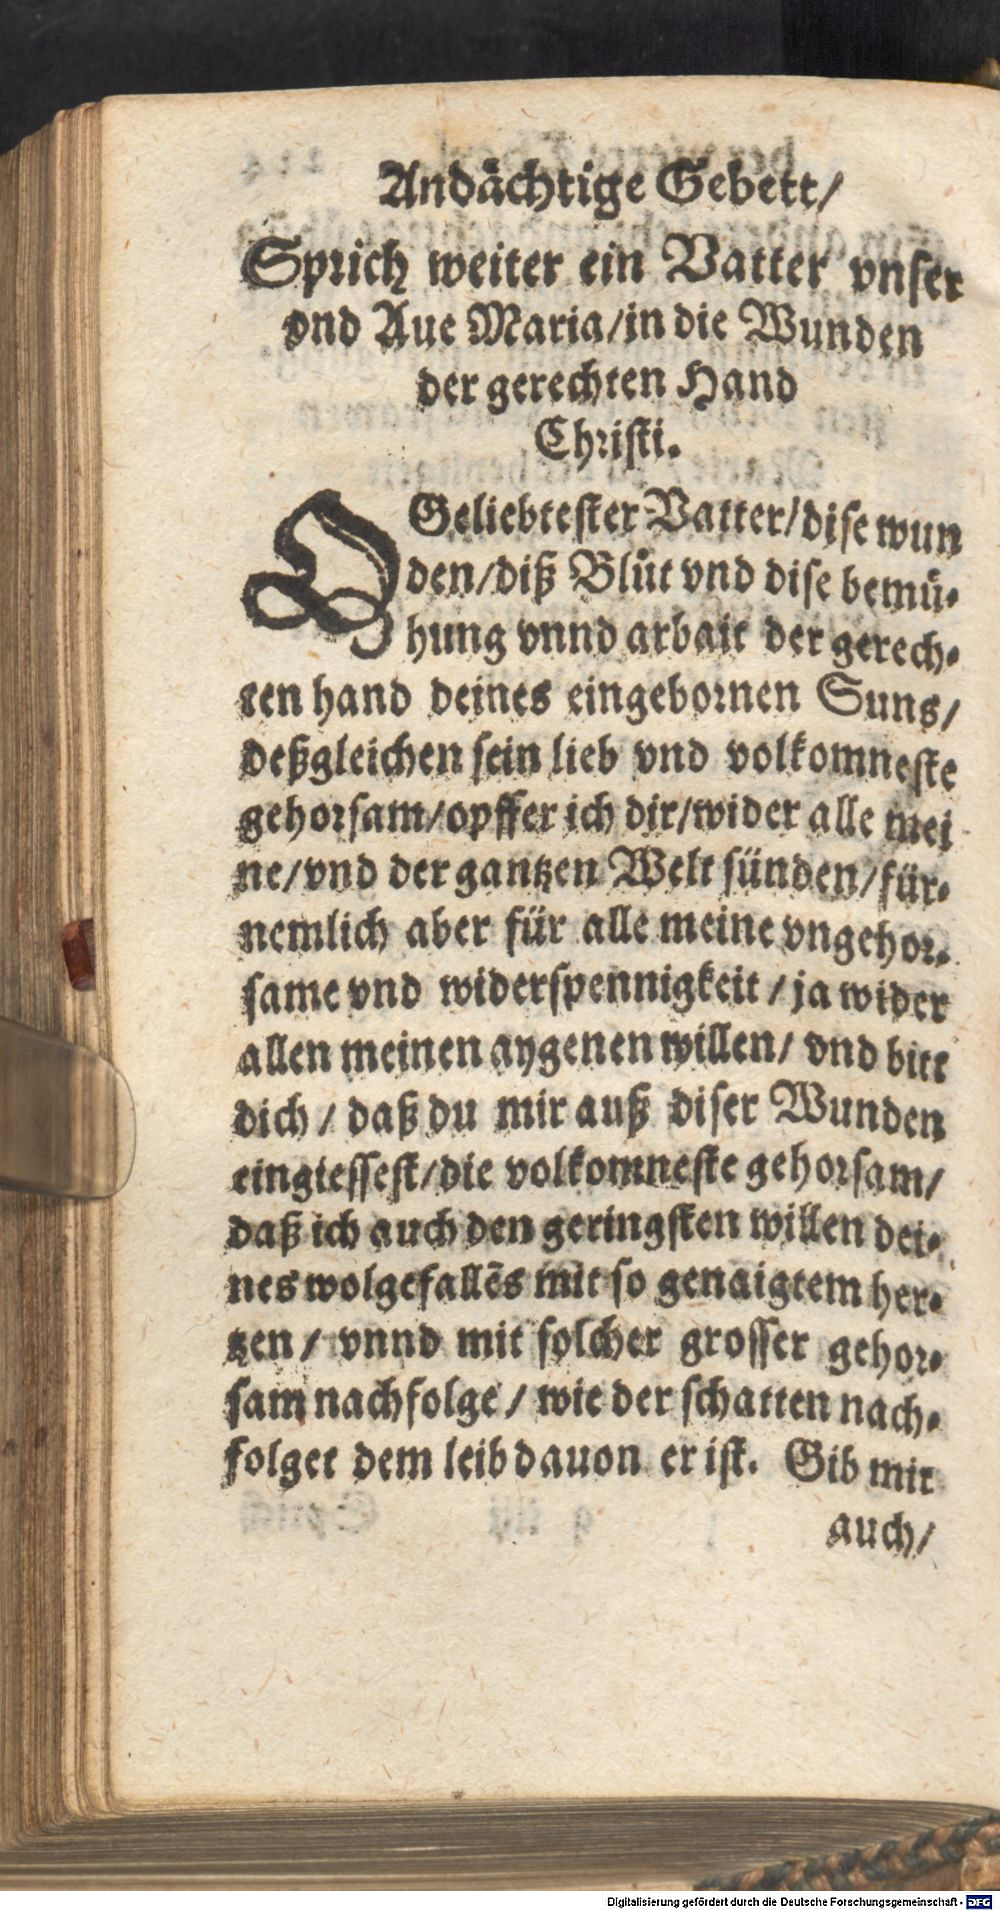 Andächtige Gebett/
Sprich weiter ein Vatter vnser
vnd Aue Maria/in die Wunden
der gerechten Hand
Christi.
O Geliebtester Vatter/dise wun
den/diß Blůt vnd dise bemü-
hung vnnd arbait der gerech-
ten hand deines eingebornen Suns/
deßgleichen sein lieb vnd volkomneste
gehorsam/opffer ich dir/wider alle mei
ne/vnd der gantzen Welt sünden/für-
nemlich aber für alle meine vngehor-
same vnd widerspennigkeit/ja wider
allen meinen aygenen willen/ vnd bitt
dich/ daß du mir auß diser Wunden
eingiessest/die volkomneste gehorsam/
daß ich auch den geringsten willen dei-
nes wolgefallēs mit so genaigtem her-
tzen/ vnnd mit solcher grosser gehor-
sam nachfolge/ wie der schatten nach-
folget dem leib dauon er ist. Gib mir
auch/
Digitalisierung gefördert durch die Deutsche Forschungsgemeinschaft - DFG